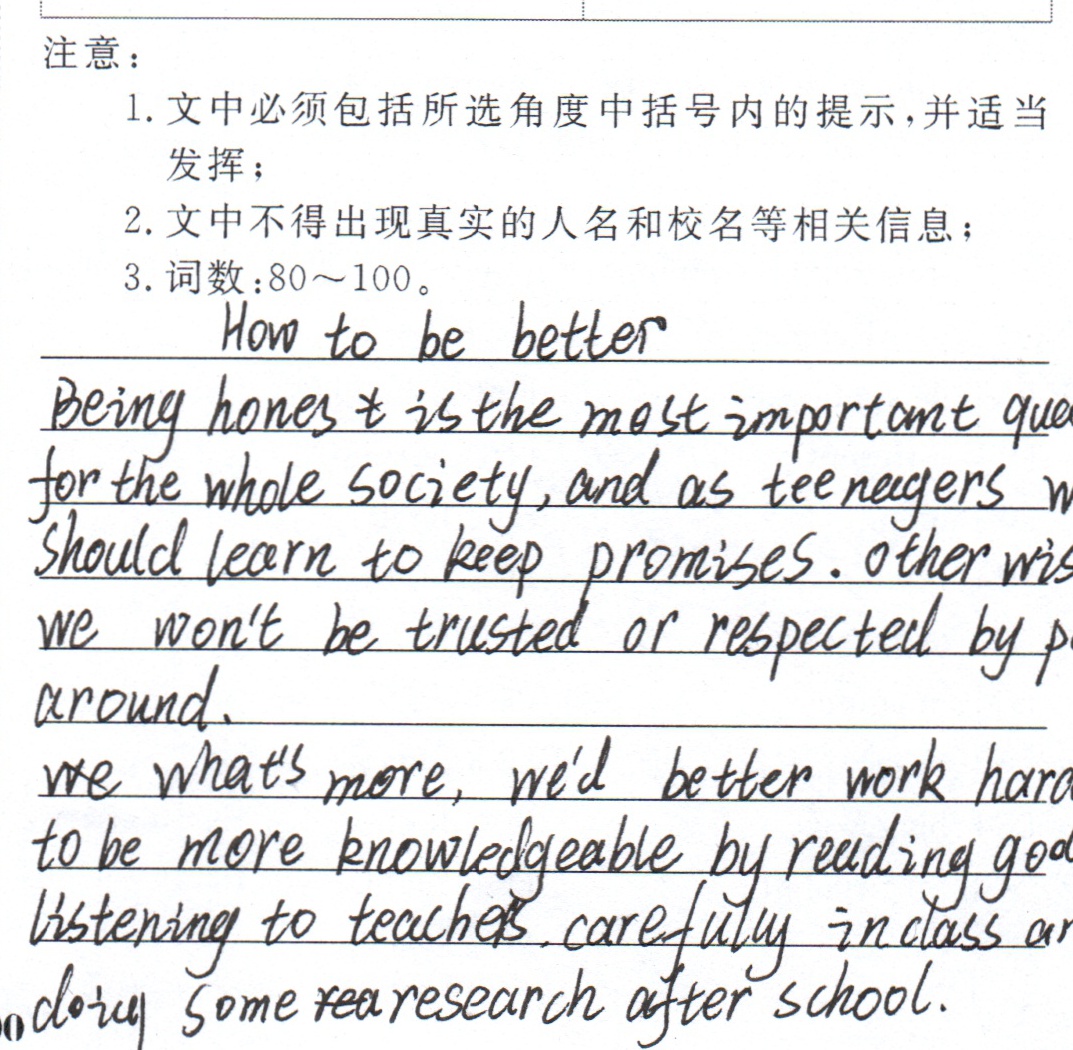 注意：
1. 文中必须包括所选角度中括号内的提示，并适当
发挥；
2. 文中不得出现真实的人名和校名等相关信息；
3. 词数：80～100。
How to be better
Being honest is the most important
for the whole society, and as teenagers
should learn to keep promises. other
we won't be trusted or respected by
around.
what's more, we'd better work
to be more knowledgeable by reading
listening to teachers. carefully in class
doing some research after school.